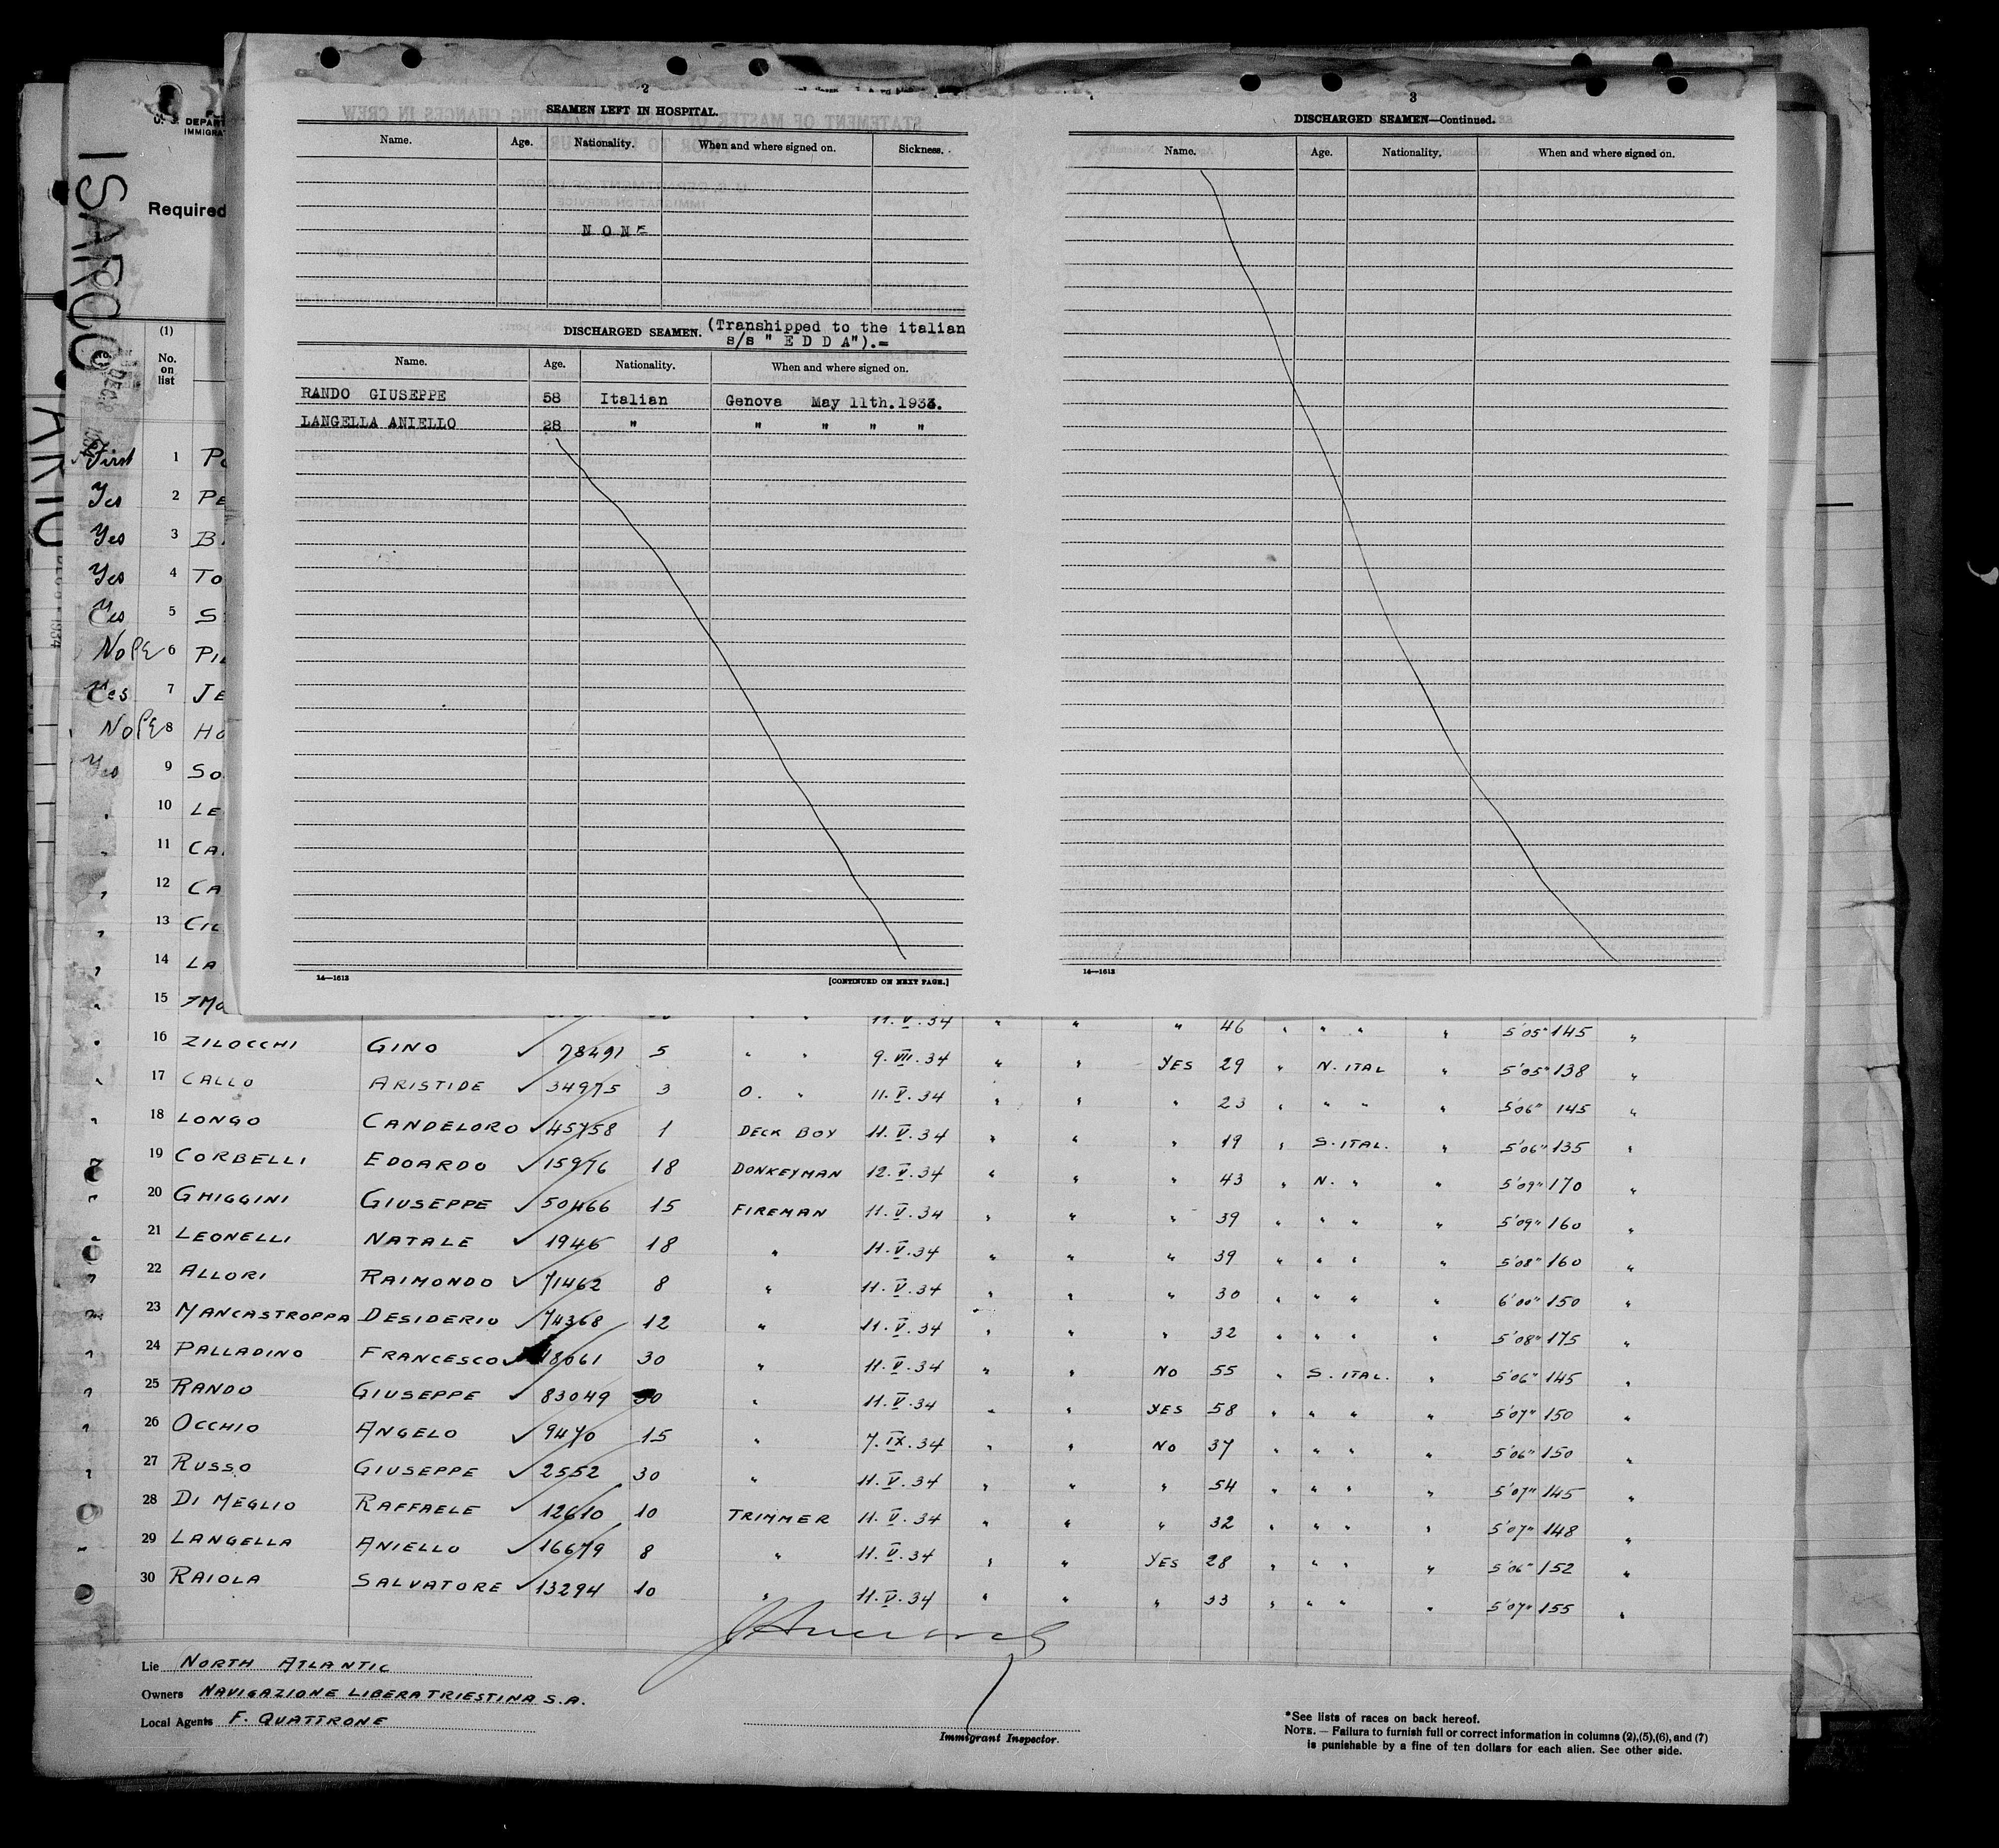 2
SEAMEN LEFT IN HOSPITAL.
Name. Age. Nationality. When and where signed on. Sickness.
NONE
DISCHARGED SEAMEN. (Transhipped to the italian
s/s " E D D A").=
Name. Age. Nationality. When and where signed on.
RANDO GIUSEPPE 58 Italian Genova May 11th.1934.
LANGELLA ANIELLO 28 " " " " "
14—1613 [CONTINUED ON NEXT PAGE.]
3
DISCHARGED SEAMEN—Continued.
Name. Age. Nationality. When and where signed on.
14—1613
ISARCO
Required
(1)
No.
on
list
First 1
Yes 2 PE
Yes 3 B
Yes 4 TO
Yes 5 S
No 6
Yes 7 JE
No 8 HO
Yes 9 SO
" 10 LE
" 11 CA
" 12 CA
" 13
" 14 LA
" 15
11.V.34 " " " 46 " " " " 5'05" 145 "
" 16 ZILOCCHI GINO ✓ 78491 5 " " 9.VII.34 " " YES 29 " N. ITAL " 5'05" 138 "
" 17 CALLO ARISTIDE ✓ 34975 3 O. " 11.V.34 " " " 23 " " " " 5'06" 145 "
" 18 LONGO CANDELORO ✓ 45758 1 DECK BOY 11.V.34 " " " 19 " S. ITAL. " 5'06" 135 "
19 CORBELLI EDOARDO ✓ 15976 18 DONKEYMAN 12.V.34 " " " 43 " N. " " 5'09" 170 "
" 20 GHIGGINI GIUSEPPE ✓ 50466 15 FIREMAN 11.V.34 " " " 39 " " " " 5'09" 160 "
" 21 LEONELLI NATALE ✓ 1946 18 " 11.V.34 " " " 39 " " " " 5'08" 160 "
" 22 ALLORI RAIMONDO ✓ 71462 8 " 11.V.34 " " " 30 " " " " 6'00" 150 "
" 23 MANCASTROPPA DESIDERIO ✓ 74368 12 " 11.V.34 " " " 32 " " " " 5'08" 175 "
" 24 PALLADINO FRANCESCO ✓ 18061 30 " 11.V.34 " " NO 55 " S. ITAL. " 5'06" 145 "
" 25 RANDO GIUSEPPE ✓ 83049 30 " 11.V.34 " " YES 58 " " " " 5'07" 150 "
" 26 OCCHIO ANGELO ✓ 9470 15 " 7.IX.34 " " NO 37 " " " " 5'06" 150 "
" 27 RUSSO GIUSEPPE ✓ 2552 30 " 11.V.34 " " " 54 " " " " 5'07" 145 "
28 DI MEGLIO RAFFAELE ✓ 12610 10 TRIMMER 11.V.34 " " " 32 " " " " 5'07" 148 "
" 29 LANGELLA ANIELLO ✓ 16679 8 " 11.V.34 " " YES 28 " " " " 5'06" 152 "
30 RAIOLA SALVATORE ✓ 13294 10 " 11.V.34 " " " 33 " " " " 5'07" 155 "
Lie NORTH ATLANTIC
Owners NAVIGAZIONE LIBERA TRIESTINA S.A.
Local Agents F. QUATTRONE
Immigrant Inspector.
*See lists of races on back hereof.
NOTE. — Failura to furnish full or correct information in columns (2),(5),(6), and (7)
is punishable by a fine of ten dollars for each alien. See other side.